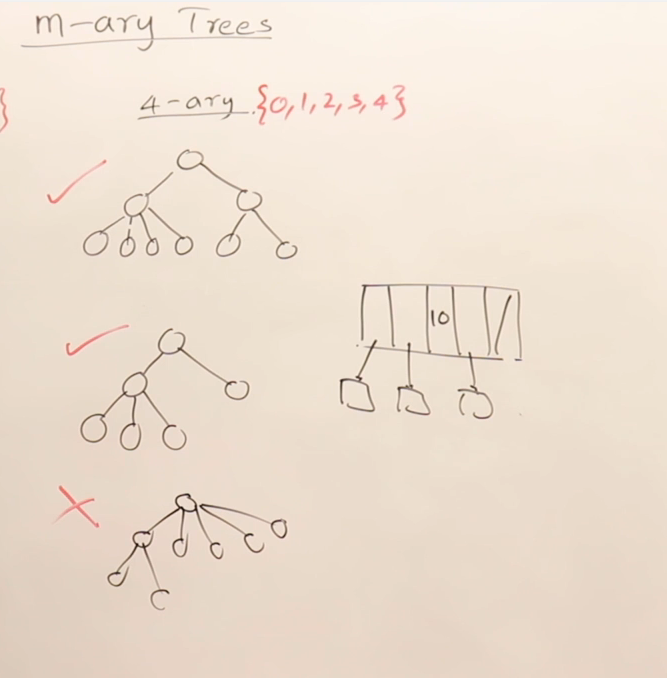 m-ary Trees
}
4-ary {0,1,2,3,4}
10